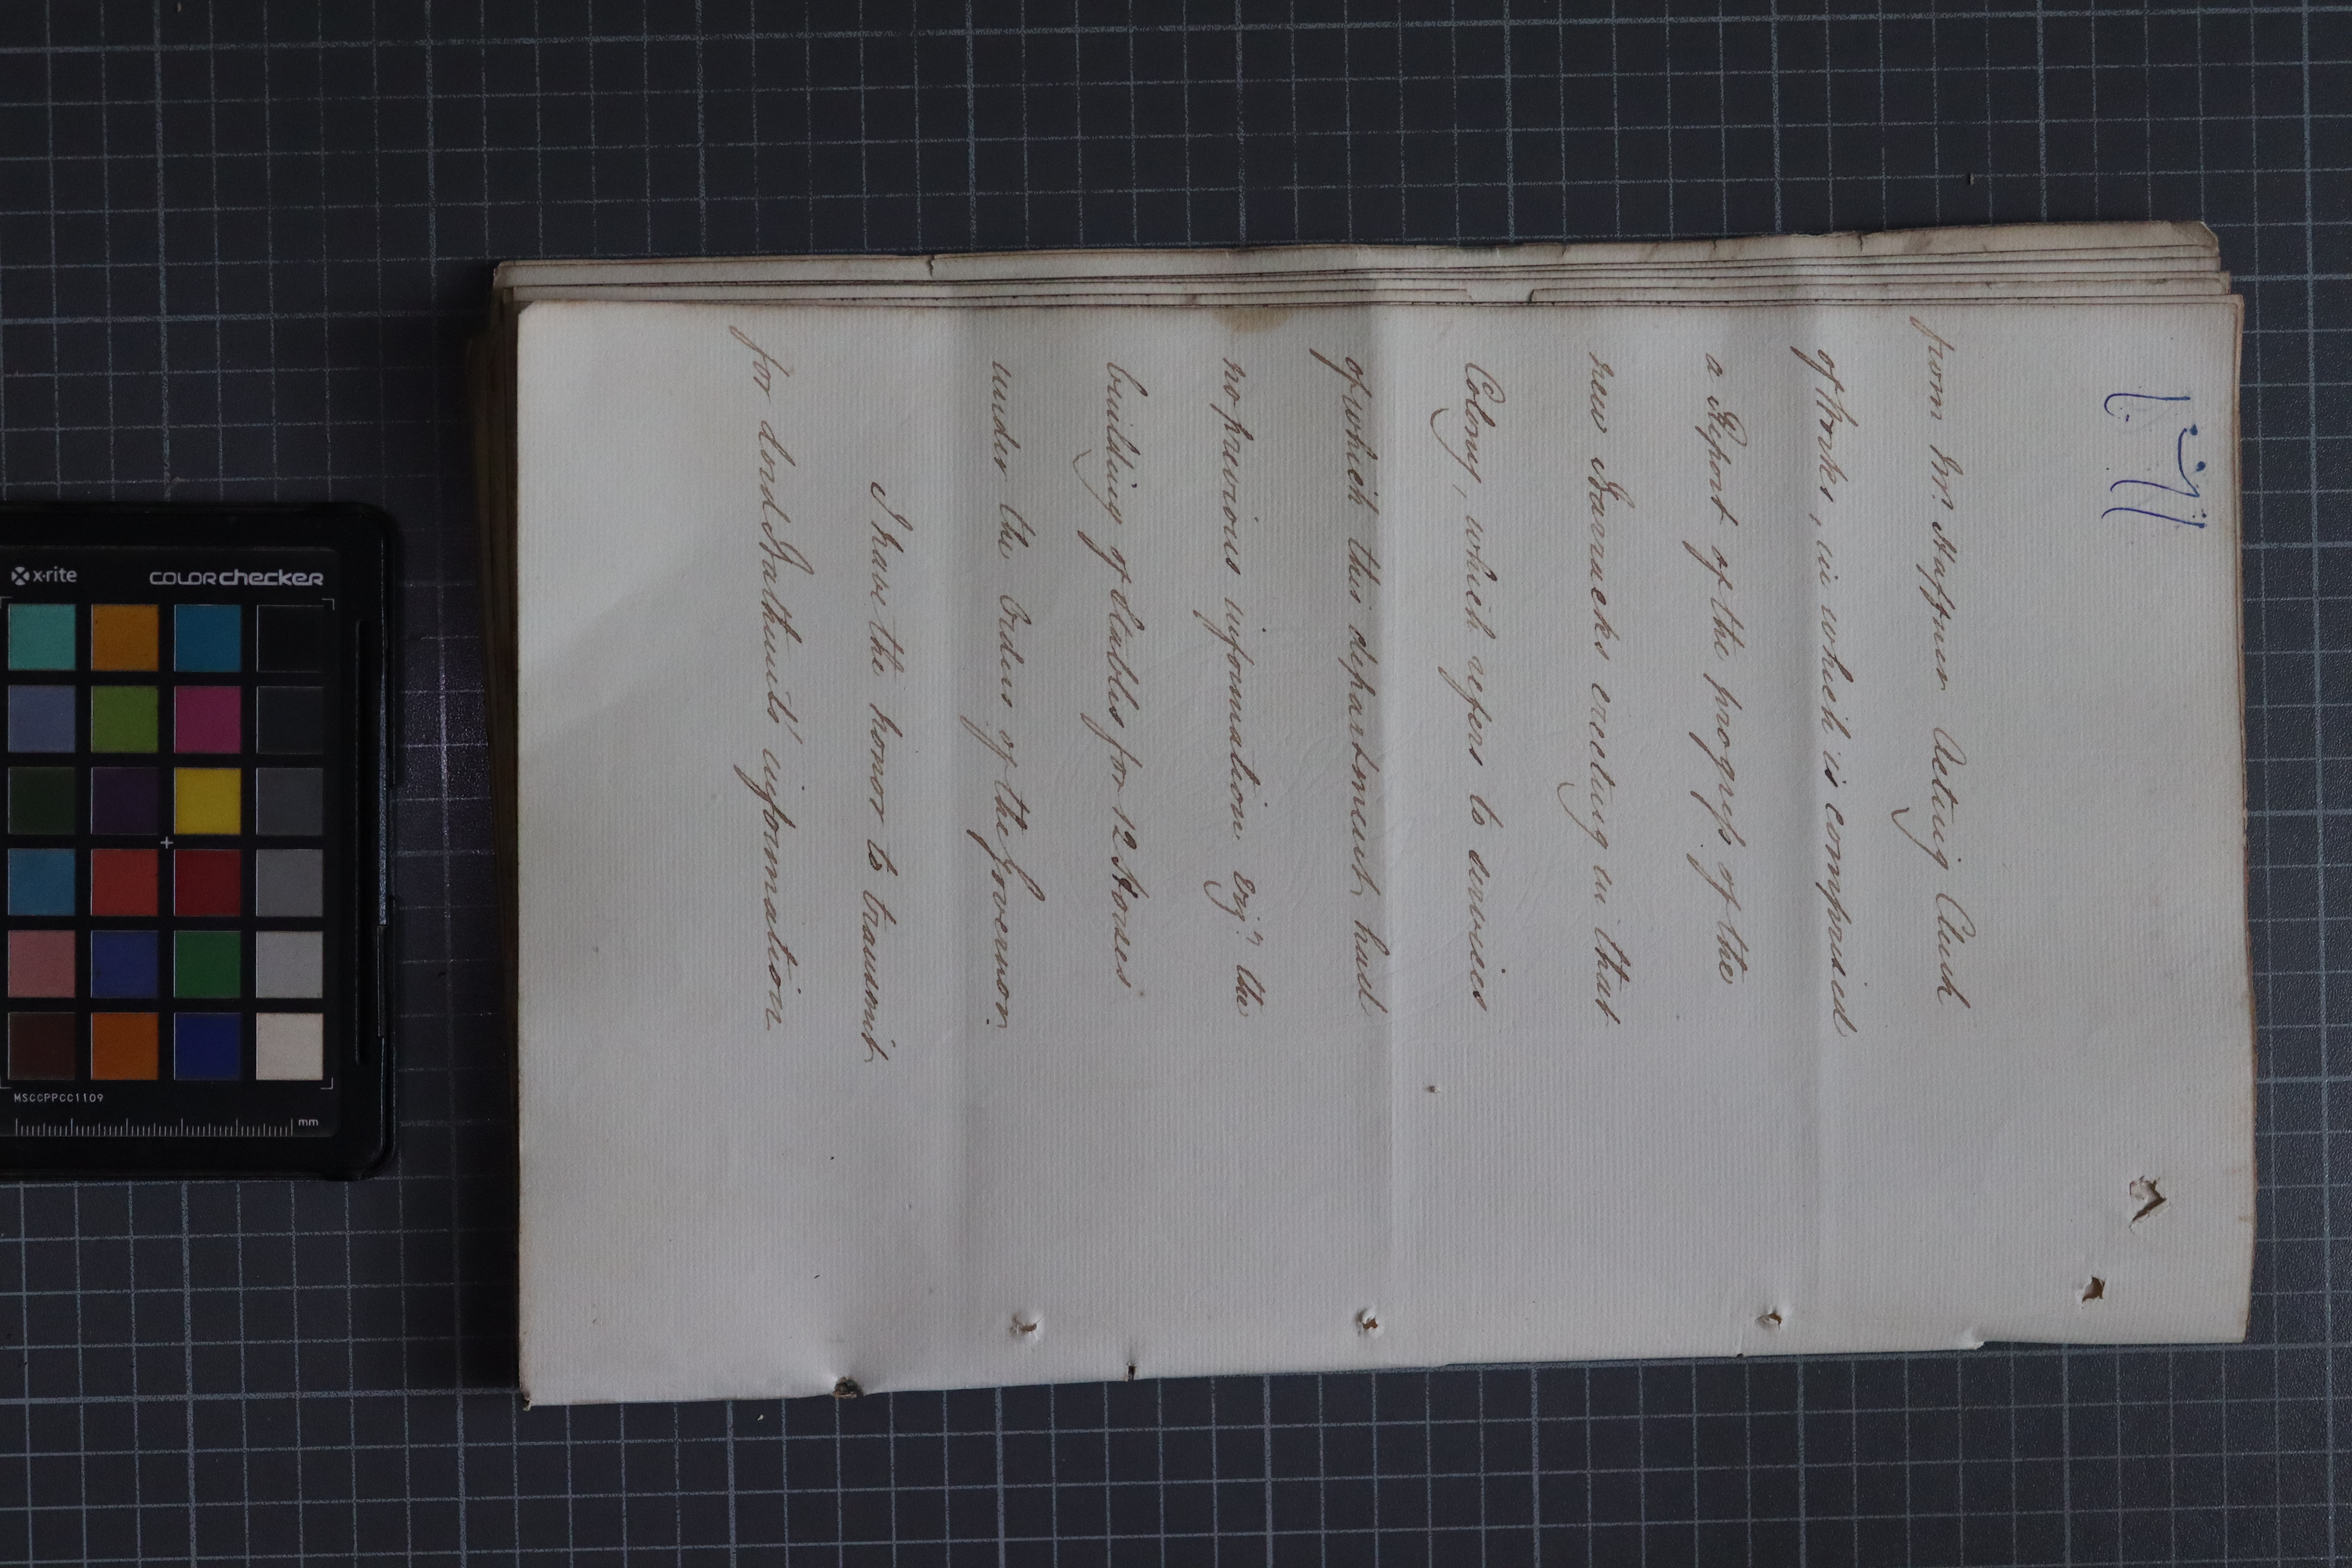 from Mr. Haffner Acting Clerk
of Works, in which is comprised
a Report of the progress of the
new Barracks erecting in that
Colony, which refers to services
of which this department had
no previous information viz.t the
building of Stables for 12 Horses
under the Orders of the Governor.
I have the honor to transmit
for Lord Bathurst's information
x-rite colorchecker
MSCCPPCC1109
mm